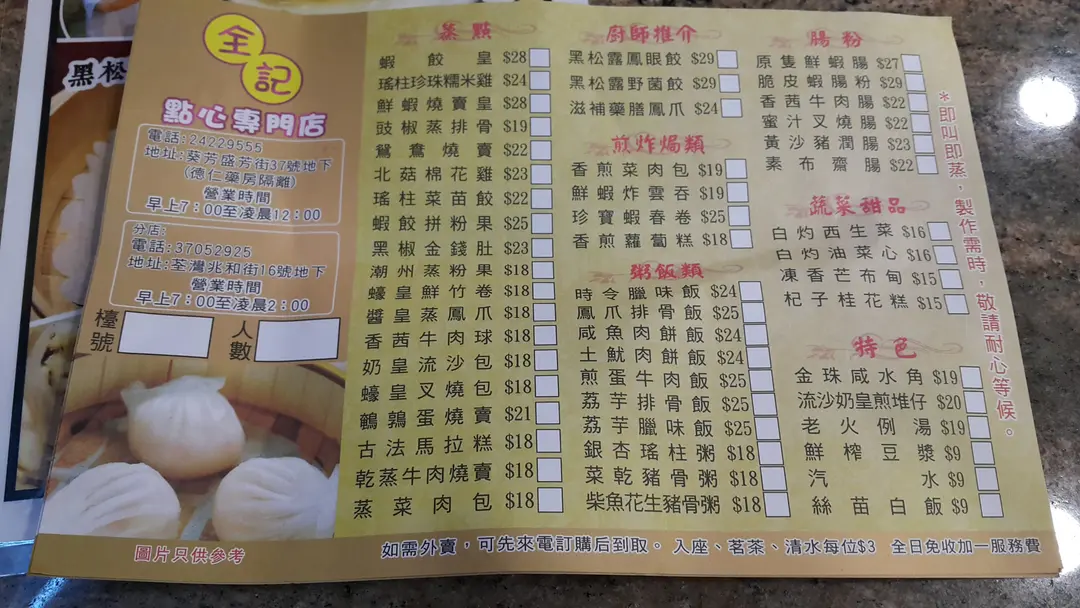 黑松
全記
點心專門店
電話:24229555
地址:葵芳盛芳街37號地下
(德仁藥房隔離)
營業時間
早上7：00至凌晨12：00
分店:
電話:37052925
地址:荃灣兆和街16號地下
營業時間
早上7：00至凌晨2：00
檯號
人數
圖片只供參考
蒸點
蝦餃皇 $28
瑤柱珍珠糯米雞 $24
鮮蝦燒賣皇 $28
豉椒蒸排骨 $19
鴛鴦燒賣 $22
北菇棉花雞 $23
瑤柱菜苗餃 $22
蝦餃拼粉果 $25
黑椒金錢肚 $23
潮州蒸粉果 $18
蠔皇鮮竹卷 $18
醬皇蒸鳳爪 $18
香茜牛肉球 $18
奶皇流沙包 $18
蠔皇叉燒包 $18
鵪鶉蛋燒賣 $21
古法馬拉糕 $18
乾蒸牛肉燒賣 $18
蒸菜肉包 $18
廚師推介
黑松露鳳眼餃 $29
黑松露野菌餃 $29
滋補藥膳鳳爪 $24
煎炸焗類
香煎菜肉包 $19
鮮蝦炸雲吞 $19
珍寶蝦春卷 $25
香煎蘿蔔糕 $18
粥飯類
時令臘味飯 $24
鳳爪排骨飯 $25
咸魚肉餅飯 $24
土魷肉餅飯 $24
煎蛋牛肉飯 $25
荔芋排骨飯 $25
荔芋臘味飯 $25
銀杏瑤柱粥 $18
菜乾豬骨粥 $18
柴魚花生豬骨粥 $18
腸粉
原隻鮮蝦腸 $27
脆皮蝦腸粉 $29
香茜牛肉腸 $22
蜜汁叉燒腸 $22
黃沙豬潤腸 $23
素布齋腸 $22
蔬菜甜品
白灼西生菜 $16
白灼油菜心 $16
凍香芒布甸 $15
杞子桂花糕 $15
特色
金珠咸水角 $19
流沙奶皇煎堆仔 $20
老火例湯 $19
鮮榨豆漿 $9
汽水 $9
絲苗白飯 $9
*即叫即蒸，製作需時，敬請耐心等候。
如需外賣，可先來電訂購后到取。 入座、茗茶、清水每位$3 全日免收加一服務費